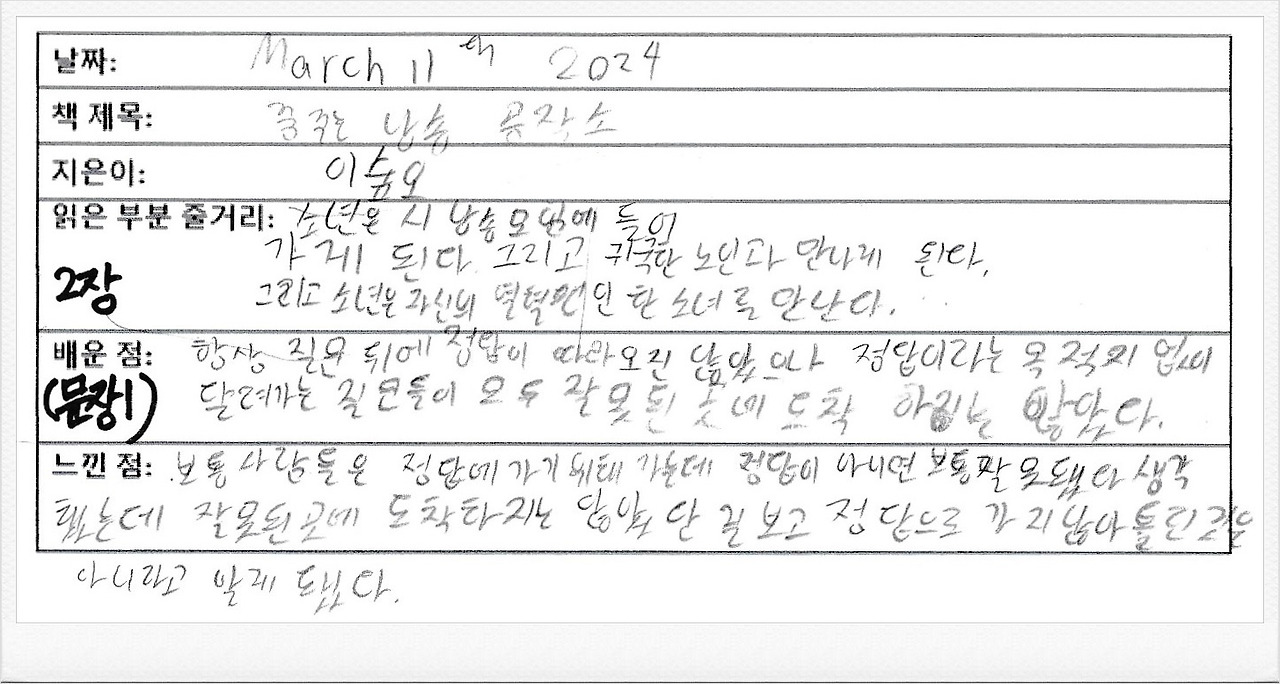 날짜: March 11th 2024
책 제목: 꿈꾸는 낭송 공작소
지은이: 이숲오
읽은 부분 줄거리: 소년은 시 낭송모임에 들어
가게 된다. 그리고 귀국한 노인과 만나게 된다.
2장 그리고 소년은 자신의 열혈팬인 한 소녀를 만난다.
배운 점: 항상 질문 뒤에 정답이 따라오진 않았으나 정답이라는 목적지 없이
(문장1) 달려가는 질문들이 모두 잘못된 곳에 도착 하지는 않았다.
느낀 점: 보통 사람들은 정답에 가기 위해 가는데 정답이 아니면 보통 잘못됐다 생각
했는데 잘못된곳에 도착하지는 않았단 걸 보고 정답으로 가지 않아 틀린것은
아니라고 알게 됐다.